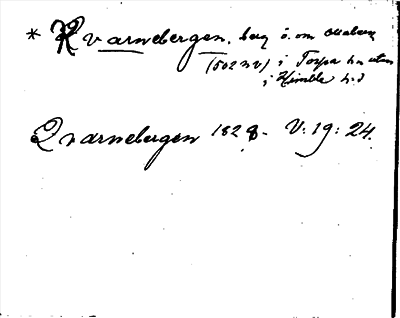 * Kvarnebergen, berg ö. om
(502 NV) i Torpa sn utan
i Himble hd
Qvarnebergen 1828. V: 19: 24.